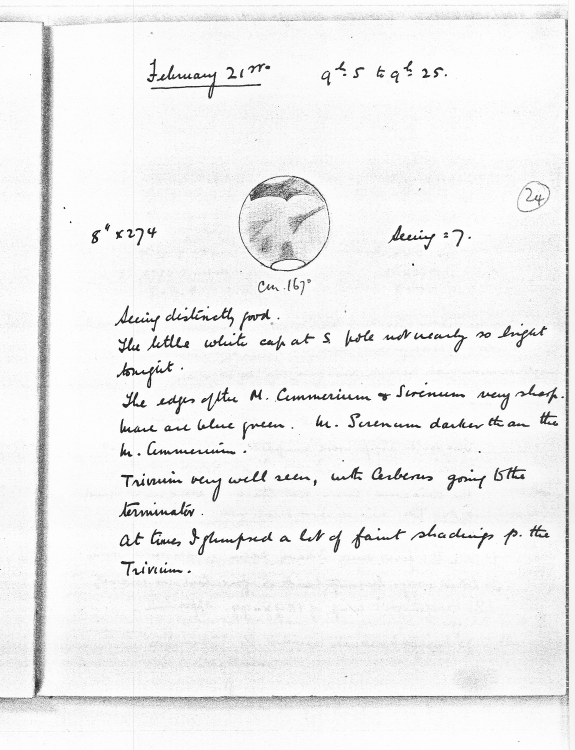 February 21st. 9h. 5 to 9h. 25.
24
8" x 274
Seeing = 7.
cm. 167°
Seeing distinctly good.
The little white cap at S pole not nearly so bright
tonight.
The edges of the M. Cimmerium & Sirenum very sharp.
Mare are blue green. M. Sirenum darker than the
M. Cimmerium.
Trivium very well seen, with Cerberus going to the
terminator.
At times I glimpsed a lot of faint shadings p. the
Trivium.